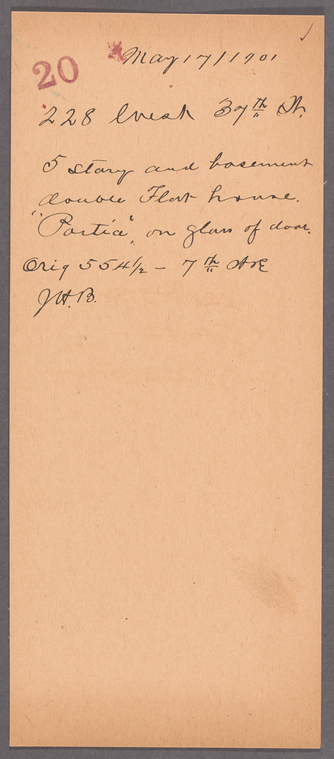 20
May 17/1901
228 West 39th St.
5 story and basement
double Flat house.
"Portia", on glass of door.
Orig 554½ – 7th Ave
J.H.B.